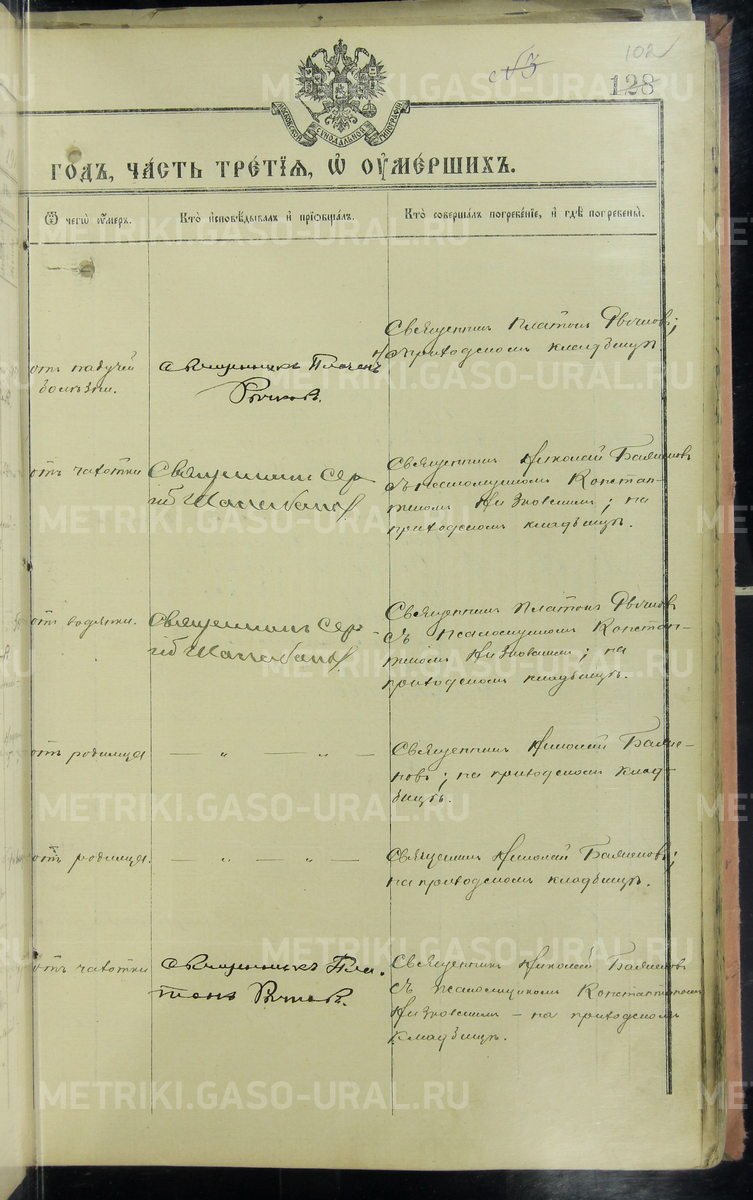 102
128
МОСКОВСКОЙ СѴНОДАЛЬНОЙ ТИПОГРАФІИ
ГОДЪ, ЧАСТЬ ТРЕТІЯ, Ѡ ОУМЕРШИХЪ.
Ѿ чегѡ оумеръ.
Кто исповѣдывалъ и пріобщалъ.
Кто совершалъ погребеніе, и гдѣ погребены.
отъ падучей
болѣзни.
священникъ Платонъ
Рычковъ.
Священникъ Платонъ Рычковъ;
на приходскомъ кладбищѣ.
отъ чахотки
Священникъ Сер-
гій
Священникъ Николай
съ псаломщикомъ Констан-
тиномъ ; на
приходскомъ кладбищѣ.
отъ водянки.
Священникъ Сер-
гій
Священникъ Платонъ Рычковъ
съ псаломщикомъ Констан-
тиномъ ; на
приходскомъ кладбищѣ.
отъ родимца
— „ — „ —
Священникъ Николай
; на приходскомъ клад-
бищѣ.
отъ родимца.
— „ — „ —
Священникъ Николай
на приходскомъ кладбищѣ.
отъ чахотки
священникъ Пла-
тонъ Рычковъ.
Священникъ Николай
съ псаломщикомъ Константиномъ
— на приходскомъ
кладбищѣ.
METRIKI.GASO-URAL.RU